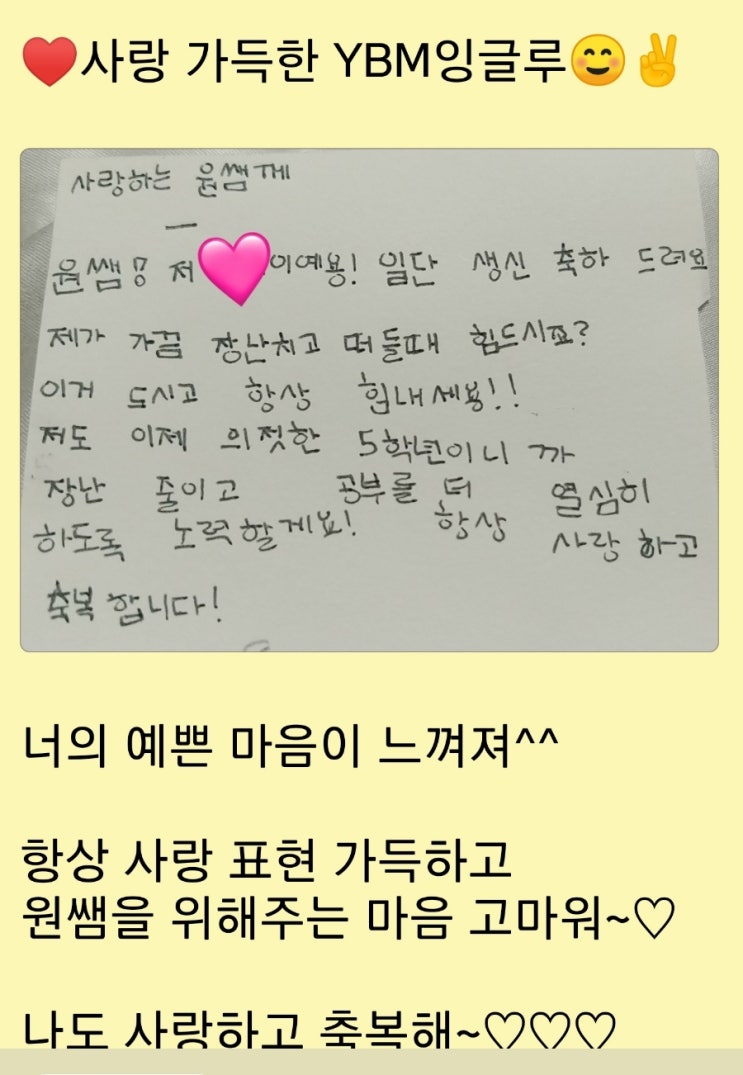 ❤️사랑 가득한 YBM잉글루😊✌️
사랑하는 원쌤께
원쌤 저 이예용! 일단 생신 축하 드려요
제가 가끔 장난치고 떠들때 힘드시죠?
이거 드시고 항상 힘내세용!!
저도 이제 의젓한 5학년이니 까
장난 줄이고 공부를 더 열심히
하도록 노력할게요! 항상 사랑 하고
축복 합니다!
너의 예쁜 마음이 느껴져^^
항상 사랑 표현 가득하고
원쌤을 위해주는 마음 고마워~♡
나도 사랑하고 축복해~♡♡♡